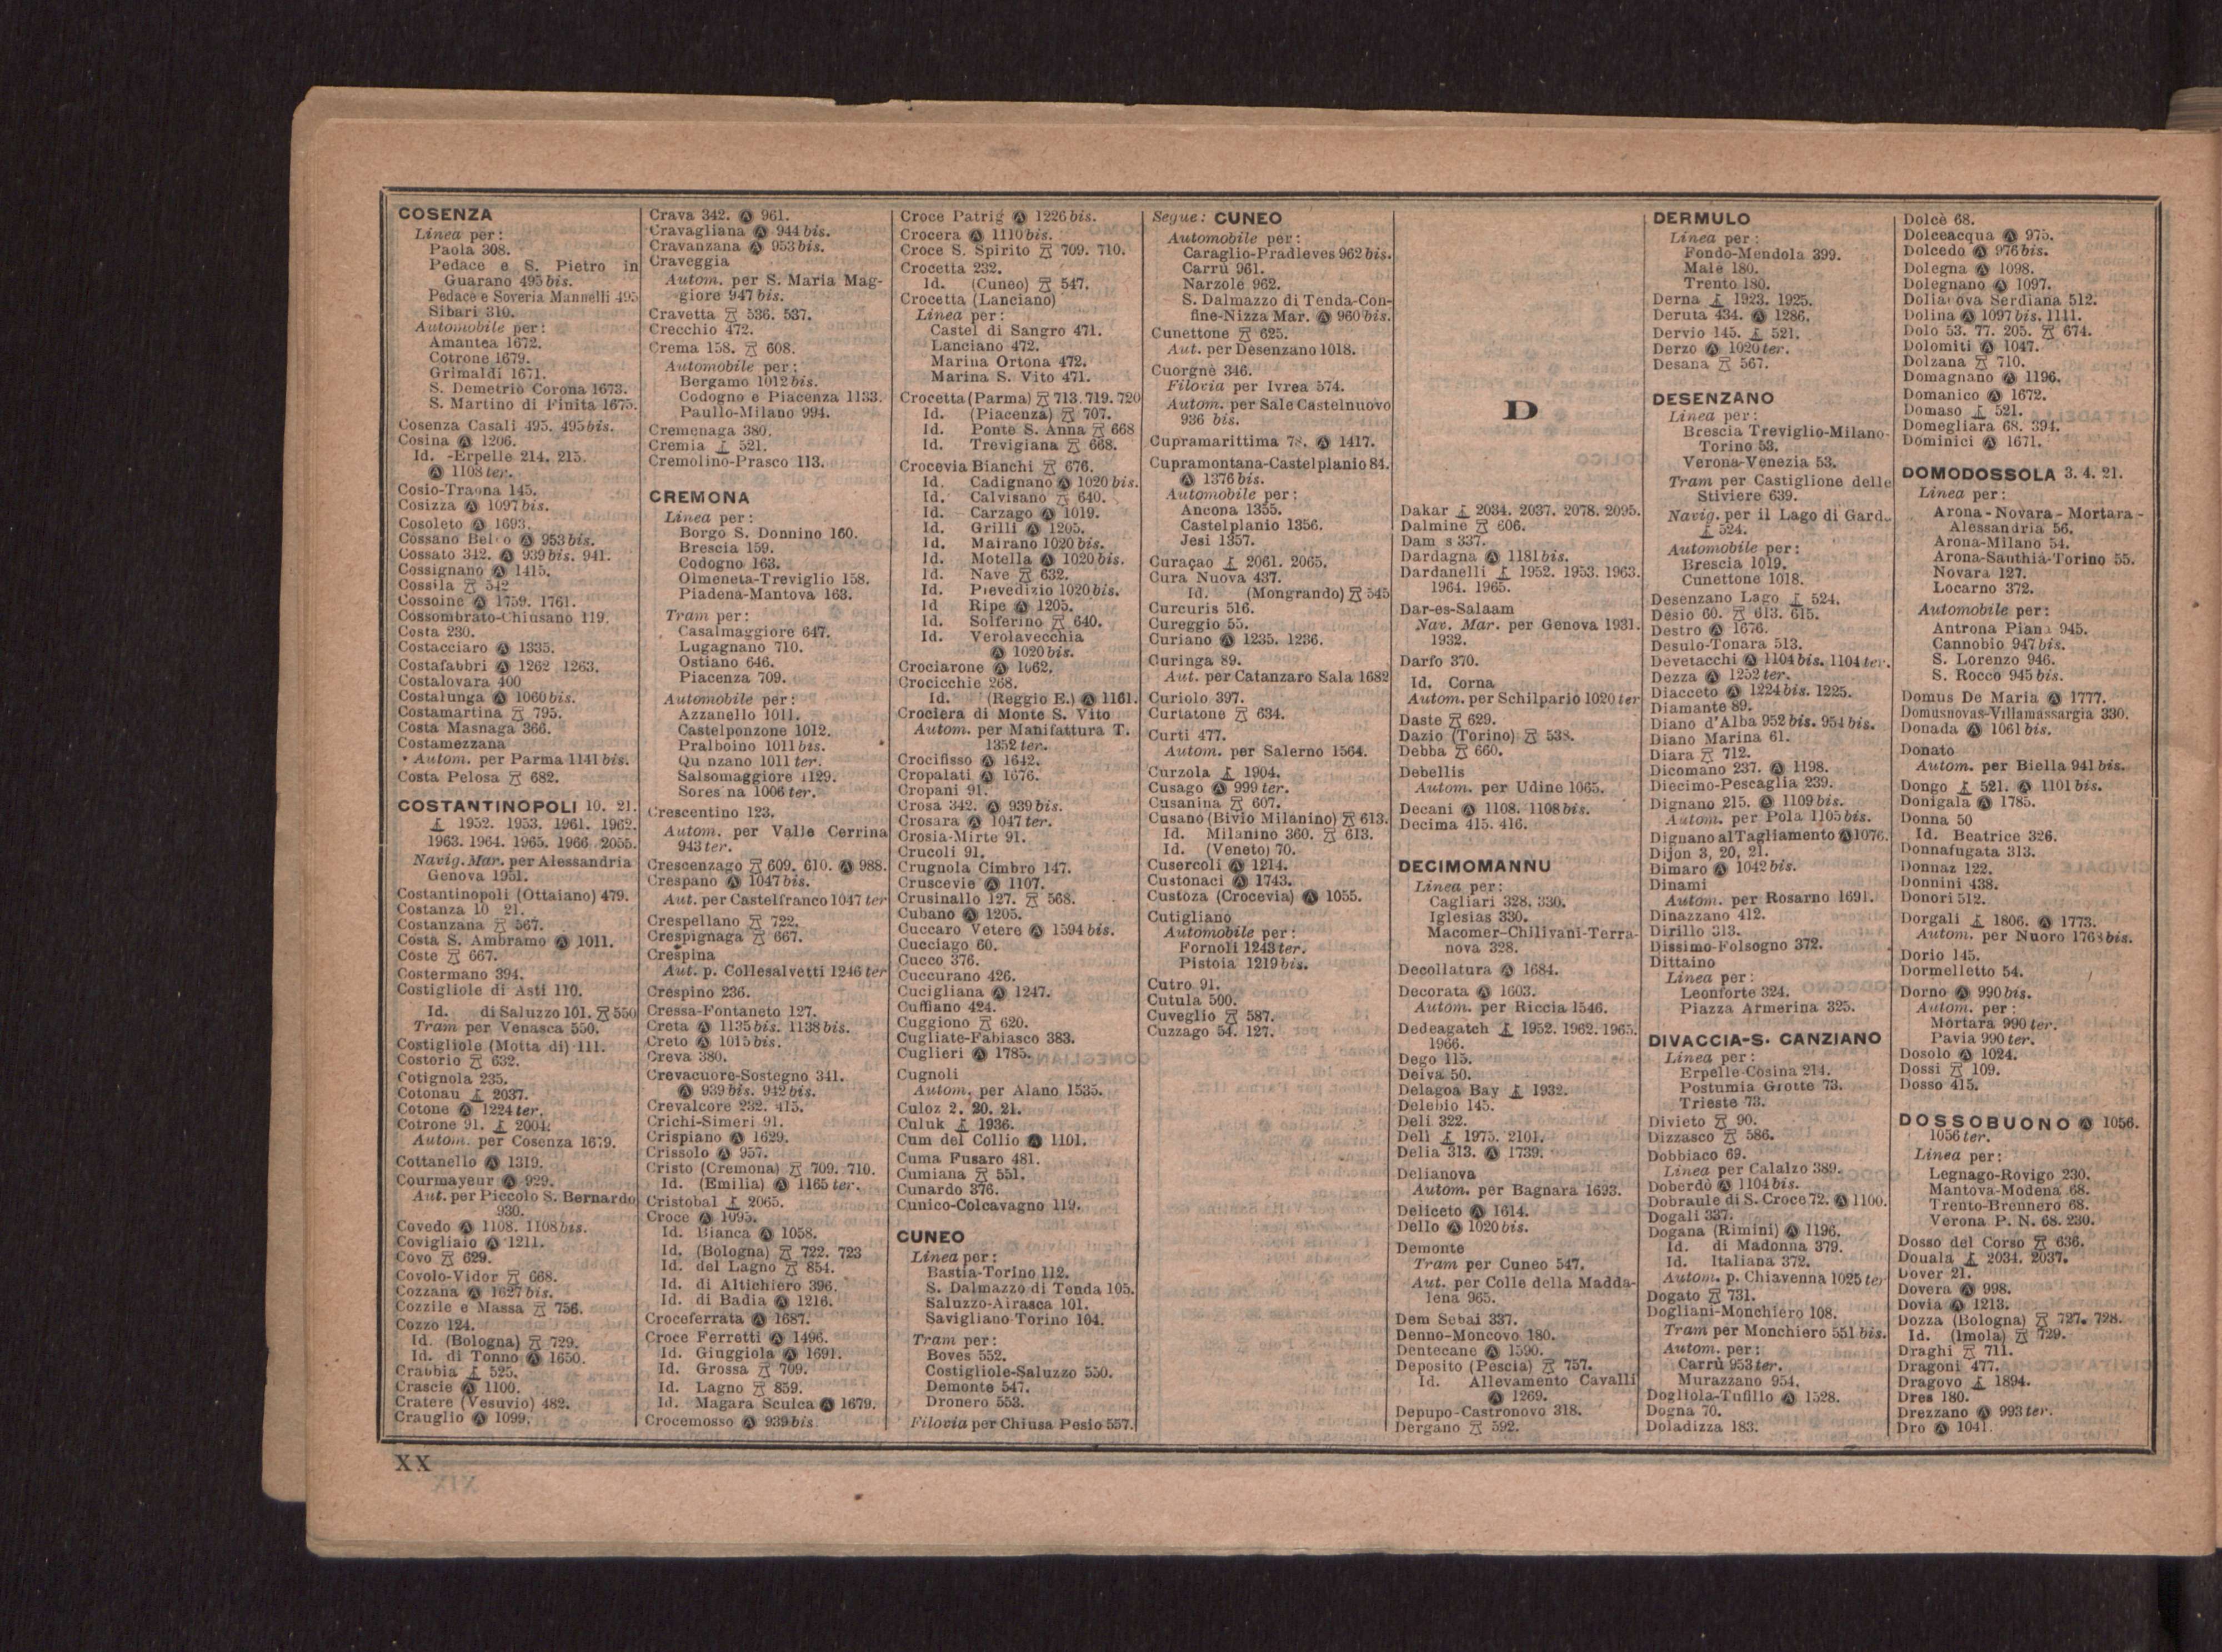 COSENZA
Linea per:
Paola 308.
Pedace e S. Pietro in
Guarano 495 bis.
Pedace e Soveria Mannelli 495
Sibari 310.
Automobile per:
Amantea 1672.
Cotrone 1679.
Grimaldi 1671.
S. Demetrio Corona 1673.
S. Martino di Finita 1675.
Cosenza Casali 495. 495 bis.
Cosina Ⓐ 1206.
Id. -Erpelle 214. 215.
Ⓐ 1108 ter.
Cosio-Traona 145.
Cosizza Ⓐ 1097 bis.
Cosoleto Ⓐ 1693.
Cossano Belbo Ⓐ 953 bis.
Cossato 342. Ⓐ 939 bis. 941.
Cossignano Ⓐ 1415.
Cossila 542
Cossoine Ⓐ 1759. 1761.
Cossombrato-Chiusano 119.
Costa 230.
Costacciaro Ⓐ 1335.
Costafabbri Ⓐ 1262 1263.
Costalovara 400
Costalunga Ⓐ 1060 bis.
Costamartina 795.
Costa Masnaga 366.
Costamezzana
Autom. per Parma 1141 bis.
Costa Pelosa 682.
COSTANTINOPOLI 10. 21.
1952. 1953. 1961. 1962.
1963. 1964. 1965. 1966 2055.
Navig. Mar. per Alessandria
Genova 1951.
Costantinopoli (Ottaiano) 479.
Costanza 10 21.
Costanzana 567.
Costa S. Ambramo Ⓐ 1011.
Coste 667.
Costermano 394.
Costigliole di Asti 110.
Id. di Saluzzo 101. 550
Tram per Venasca 550.
Costigliole (Motta di) 111.
Costorio 632.
Cotignola 235.
Cotonau 2037.
Cotone Ⓐ 1224 ter.
Cotrone 91. 2004.
Autom. per Cosenza 1679.
Cottanello Ⓐ 1319.
Courmayeur Ⓐ 929.
Aut. per Piccolo S. Bernardo
930.
Covedo Ⓐ 1108. 1108 bis.
Covigliaio Ⓐ 1211.
Covo 629.
Covolo-Vidor 668.
Cozzana Ⓐ 1627 bis.
Cozzile e Massa 756.
Cozzo 124.
Id. (Bologna) 729.
Id. di Tonno Ⓐ 1650.
Crabbia 525.
Crascie Ⓐ 1100.
Cratere (Vesuvio) 482.
Crauglio Ⓐ 1099.
Crava 342. Ⓐ 961.
Cravagliana Ⓐ 944 bis.
Cravanzana Ⓐ 953 bis.
Craveggia
Autom. per S. Maria Mag-
giore 947 bis.
Cravetta 536. 537.
Crecchio 472.
Crema 158. 608.
Automobile per:
Bergamo 1012 bis.
Codogno e Piacenza 1133.
Paullo-Milano 994.
Cremenaga 380.
Cremia 521.
Cremolino-Prasco 113.
CREMONA
Linea per:
Borgo S. Donnino 160.
Brescia 159.
Codogno 163.
Olmeneta-Treviglio 158.
Piadena-Mantova 163.
Tram per:
Casalmaggiore 647.
Lugagnano 710.
Ostiano 646.
Piacenza 709.
Automobile per:
Azzanello 1011.
Castelponzone 1012.
Pralboino 1011 bis.
Qu nzano 1011 ter.
Salsomaggiore 1129.
Sores na 1006 ter.
Crescentino 123.
Autom. per Valle Cerrina
943 ter.
Crescenzago 609. 610. Ⓐ 988.
Crespano Ⓐ 1047 bis.
Aut. per Castelfranco 1047 ter
Crespellano 722.
Crespignaga 667.
Crespina
Aut. p. Collesalvetti 1246 ter
Crespino 236.
Cressa-Fontaneto 127.
Creta Ⓐ 1135 bis. 1138 bis.
Creto Ⓐ 1015 bis.
Creva 380.
Crevacuore-Sostegno 341.
Ⓐ 939 bis. 942 bis.
Crevalcore 232. 415.
Crichi-Simeri 91.
Crispiano Ⓐ 1629.
Crissolo Ⓐ 957.
Cristo (Cremona) 709. 710.
Id. (Emilia) Ⓐ 1165 ter.
Cristobal 2065.
Croce Ⓐ 1095.
Id. Bianca Ⓐ 1058.
Id. (Bologna) 722. 723
Id. del Lagno 854.
Id. di Altichiero 396.
Id. di Badia Ⓐ 1216.
Croceferrata Ⓐ 1687.
Croce Ferretti Ⓐ 1496.
Id. Giuggiola Ⓐ 1691.
Id. Grossa 709.
Id. Lagno 859.
Id. Magara Sculca Ⓐ 1679.
Crocemosso Ⓐ 939 bis
Croce Patrig Ⓐ 1226 bis.
Crocera Ⓐ 1110 bis.
Croce S. Spirito 709. 710.
Crocetta 232.
Id. (Cuneo) 547.
Crocetta (Lanciano)
Linea per:
Castel di Sangro 471.
Lanciano 472.
Marina Ortona 472.
Marina S. Vito 471.
Crocetta (Parma) 713. 719. 720
Id. (Piacenza) 707.
Id. Ponte S. Anna 668
Id. Trevigiana 668.
Crocevia Bianchi 676.
Id. Cadignano Ⓐ 1020 bis.
Id. Calvisano 640.
Id. Carzago Ⓐ 1019.
Id. Grilli Ⓐ 1205.
Id. Mairano 1020 bis.
Id. Motella Ⓐ 1020 bis.
Id. Nave 632.
Id. Pievedizio 1020 bis.
Id Ripe Ⓐ 1205.
Id. Solferino 640.
Id. Verolavecchia
Ⓐ 1020 bis.
Crociarone Ⓐ 1062.
Crocicchie 268.
Id. (Reggio E.) Ⓐ 1161.
Crociera di Monte S. Vito
Autom. per Manifattura T.
1352 ter.
Crocifisso Ⓐ 1642.
Cropalati Ⓐ 1676.
Cropani 91.
Crosa 342. Ⓐ 939 bis.
Crosara Ⓐ 1047 ter.
Crosia-Mirto 91.
Crucoli 91.
Crugnola Cimbro 147.
Cruscevie Ⓐ 1107.
Crusinallo 127. 568.
Cubano Ⓐ 1205.
Cuccaro Vetere Ⓐ 1594 bis.
Cucciago 60.
Cucco 376.
Cuccurano 426.
Cucigliana Ⓐ 1247.
Cuffiano 424.
Cuggiono 620.
Cugliate-Fabiasco 383.
Cuglieri Ⓐ 1785.
Cugnoli
Autom. per Alano 1535.
Culoz 2. 20. 21.
Culuk 1936.
Cum del Collio Ⓐ 1101.
Cuma Fusaro 481.
Cumiana 551.
Cunardo 376.
Cunico-Colcavagno 119.
CUNEO
Linea per:
Bastia-Torino 112.
S. Dalmazzo di Tenda 105.
Saluzzo-Airasca 101.
Savigliano-Torino 104.
Tram per:
Boves 552.
Costigliole-Saluzzo 550.
Demonte 547.
Dronero 553.
Filovia per Chiusa Pesio 557.
Segue: CUNEO
Automobile per:
Caraglio-Pradleves 962 bis.
Carrù 961.
Narzole 962.
S. Dalmazzo di Tenda-Con-
fine-Nizza Mar. Ⓐ 960 bis.
Cunettone 625.
Aut. per Desenzano 1018.
Cuorgnè 346.
Filovia per Ivrea 574.
Autom. per Sale Castelnuovo
936 bis.
Cupramarittima 78. Ⓐ 1417.
Cupramontana-Castelplanio 84.
Ⓐ 1376 bis.
Automobile per:
Ancona 1355.
Castelplanio 1356.
Jesi 1357.
Curaçao 2061. 2065.
Cura Nuova 437.
Id. (Mongrando) 545
Curcuris 516.
Cureggio 55.
Curiano Ⓐ 1235. 1236.
Curinga 89.
Aut. per Catanzaro Sala 1682
Curiolo 397.
Curtatone 634.
Curti 477.
Autom. per Salerno 1564.
Curzola 1904.
Cusago Ⓐ 999 ter.
Cusanina 607.
Cusano (Bivio Milanino) 613.
Id. Milanino 360. 613.
Id. (Veneto) 70.
Cusercoli Ⓐ 1214.
Custonaci Ⓐ 1743.
Custoza (Crocevia) Ⓐ 1055.
Cutigliano
Automobile per:
Fornoli 1243 ter.
Pistoia 1219 bis.
Cutro 91.
Cutula 500.
Cuveglio 587.
Cuzzago 54. 127.
D
Dakar 2034. 2037. 2078. 2095.
Dalmine 606.
Dam s 337.
Dardagna Ⓐ 1181 bis.
Dardanelli 1952. 1953. 1963.
1964. 1965.
Dar-es-Salaam
Nav. Mar. per Genova 1931.
1932.
Darfo 370.
Id. Corna
Autom. per Schilpario 1020 ter
Daste 629.
Dazio (Torino) 538.
Debba 660.
Debellis
Autom. per Udine 1065.
Decani Ⓐ 1108. 1108 bis.
Decima 415. 416.
DECIMOMANNU
Linea per:
Cagliari 328. 330.
Iglesias 330.
Macomer-Chilivani-Terra-
nova 328.
Decollatura Ⓐ 1684.
Decorata Ⓐ 1603.
Autom. per Riccia 1546.
Dedeagatch 1952. 1962. 1965.
1966.
Dego 115.
Deiva 50.
Delagoa Bay 1932.
Delebio 145.
Deli 322.
Deli 1975. 2101.
Delia 313. Ⓐ 1739.
Delianova
Autom. per Bagnara 1693.
Deliceto Ⓐ 1614.
Dello Ⓐ 1020 bis.
Demonte
Tram per Cuneo 547.
Aut. per Colle della Madda-
lena 965.
Dem Sebai 337.
Denno-Moncovo 180.
Dentecane Ⓐ 1590.
Deposito (Pescia) 757.
Id. Allevamento Cavalli
Ⓐ 1269.
Depupo-Castronovo 318.
Dergano 592.
DERMULO
Linea per:
Fondo-Mendola 399.
Malè 180.
Trento 180.
Derna 1923. 1925.
Deruta 434. Ⓐ 1286.
Dervio 145. 521.
Derzo Ⓐ 1020 ter.
Desana 567.
DESENZANO
Linea per:
Brescia Treviglio-Milano-
Torino 53.
Verona-Venezia 53.
Tram per Castiglione delle
Stiviere 639.
Navig. per il Lago di Gard.
524.
Automobile per:
Brescia 1019.
Cunettone 1018.
Desenzano Lago 524.
Desio 60. 613. 615.
Destro Ⓐ 1676.
Desulo-Tonara 513.
Devetacchi Ⓐ 1104 bis. 1104 ter.
Dezza Ⓐ 1252 ter.
Diacceto Ⓐ 1224 bis. 1225.
Diamante 89.
Diano d'Alba 952 bis. 954 bis.
Diano Marina 61.
Diara 712.
Dicomano 237. Ⓐ 1198.
Diecimo-Pescaglia 239.
Dignano 215. Ⓐ 1109 bis.
Autom. per Pola 1105 bis.
Dignano al Tagliamento Ⓐ 1076.
Dijon 3, 20, 21.
Dimaro Ⓐ 1042 bis.
Dinami
Autom. per Rosarno 1691.
Dinazzano 412.
Dirillo 313.
Dissimo-Folsogno 372.
Dittaino
Linea per:
Leonforte 324.
Piazza Armerina 325.
DIVACCIA-S. CANZIANO
Linea per:
Erpelle-Cosina 214.
Postumia Grotte 73.
Trieste 73.
Divieto 90.
Dizzasco 586.
Dobbiaco 69.
Linea per Calalzo 389.
Doberdò Ⓐ 1104 bis.
Dobraule di S. Croce 72. Ⓐ 1100.
Dogali 337.
Dogana (Rimini) Ⓐ 1196.
Id. di Madonna 379.
Id. Italiana 372.
Autom. p. Chiavenna 1025 ter
Dogato 731.
Dogliani-Monchiero 108.
Tram per Monchiero 551 bis.
Autom. per:
Carrù 953 ter.
Murazzano 954.
Dogliola-Tufillo Ⓐ 1528.
Dogna 70.
Doladizza 183.
Dolcè 68.
Dolceacqua Ⓐ 975.
Dolcedo Ⓐ 976 bis.
Dolegna Ⓐ 1098.
Dolegnano Ⓐ 1097.
Dolianova Serdiana 512.
Dolina Ⓐ 1097 bis. 1111.
Dolo 53. 77. 205. 674.
Dolomiti Ⓐ 1047.
Dolzana 710.
Domagnano Ⓐ 1196.
Domanico Ⓐ 1672.
Domaso 521.
Domegliara 68. 394.
Dominici Ⓐ 1671.
DOMODOSSOLA 3. 4. 21.
Linea per:
Arona-Novara-Mortara-
Alessandria 56.
Arona-Milano 54.
Arona-Santhià-Torino 55.
Novara 127.
Locarno 372.
Automobile per:
Antrona Piana 945.
Cannobio 947 bis.
S. Lorenzo 946.
S. Rocco 945 bis.
Domus De Maria Ⓐ 1777.
Domusnovas-Villamassargia 330.
Donada Ⓐ 1061 bis.
Donato
Autom. per Biella 941 bis.
Dongo 521. Ⓐ 1101 bis.
Donigala Ⓐ 1785.
Donna 50
Id. Beatrice 326.
Donnafugata 313.
Donnaz 122.
Donnini 438.
Donori 512.
Dorgali 1806. Ⓐ 1773.
Autom. per Nuoro 1768 bis.
Dorio 145.
Dormelletto 54.
Dorno Ⓐ 990 bis.
Autom. per:
Mortara 990 ter.
Pavia 990 ter.
Dosolo Ⓐ 1024.
Dossi 109.
Dosso 415.
DOSSOBUONO Ⓐ 1056.
1056 ter.
Linea per:
Legnago-Rovigo 230.
Mantova-Modena 68.
Trento-Brennero 68.
Verona P. N. 68. 230.
Dosso del Corso 636.
Douala 2034. 2037.
Dover 21.
Dovera Ⓐ 998.
Dovia Ⓐ 1213.
Dozza (Bologna) 727. 728.
Id. (Imola) 729.
Draghi 711.
Dragoni 477.
Dragovo 1894.
Dres 180.
Drezzano Ⓐ 993 ter.
Dro Ⓐ 1041.
XX